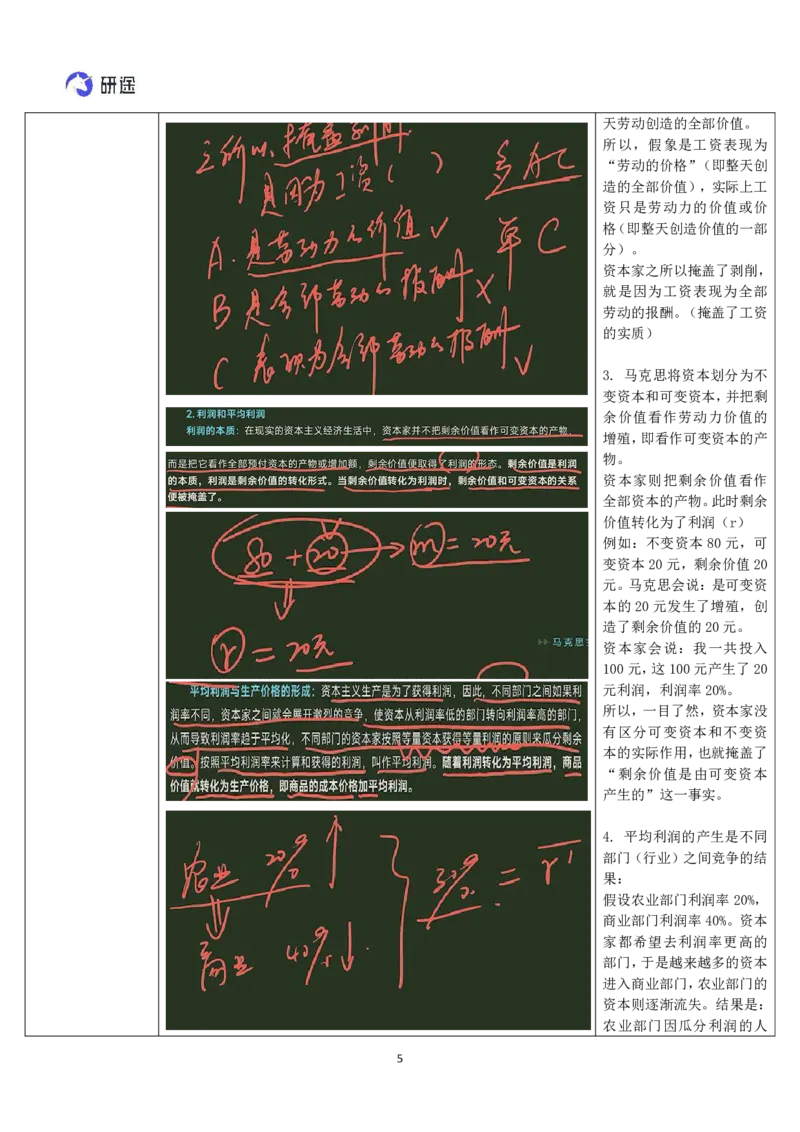 研途
之所以掩盖剥削
是因为工资( )
多 AC
A. 是劳动力的价值 √
单 C
B 是全部劳动的报酬 ×
C 表现为全部劳动的报酬 √
2. 利润和平均利润
利润的本质：在现实的资本主义经济生活中，资本家并不把剩余价值看作可变资本的产物，
而是把它看作全部预付资本的产物或增加额，剩余价值便取得了利润的形态。剩余价值是利润
的本质，利润是剩余价值的转化形式。当剩余价值转化为利润时，剩余价值和可变资本的关系
便被掩盖了。
80 + 20 → m = 20元
马克思
r = 20元
平均利润与生产价格的形成：资本主义生产是为了获得利润，因此，不同部门之间如果利
润率不同，资本家之间就会展开激烈的竞争，使资本从利润率低的部门转向利润率高的部门，
从而导致利润率趋于平均化，不同部门的资本家按照等量资本获得等量利润的原则来瓜分剩余
价值。按照平均利润率来计算和获得的利润，叫作平均利润。随着利润转化为平均利润，商品
价值就转化为生产价格，即商品的成本价格加平均利润。
农业 20% ↑
30% = r'
商业 40% ↓
天劳动创造的全部价值。
所以，假象是工资表现为
“劳动的价格”（即整天创
造的全部价值），实际上工
资只是劳动力的价值或价
格（即整天创造价值的一部
分）。
资本家之所以掩盖了剥削，
就是因为工资表现为全部
劳动的报酬。（掩盖了工资
的实质）
3. 马克思将资本划分为不
变资本和可变资本，并把剩
余价值看作劳动力价值的
增殖，即看作可变资本的产
物。
资本家则把剩余价值看作
全部资本的产物。此时剩余
价值转化为了利润（r）
例如：不变资本 80 元，可
变资本 20 元，剩余价值 20
元。马克思会说：是可变资
本的 20 元发生了增殖，创
造了剩余价值的 20 元。
资本家会说：我一共投入
100 元，这 100 元产生了 20
元利润，利润率 20%。
所以，一目了然，资本家没
有区分可变资本和不变资
本的实际作用，也就掩盖了
“剩余价值是由可变资本
产生的”这一事实。
4. 平均利润的产生是不同
部门（行业）之间竞争的结
果：
假设农业部门利润率 20%，
商业部门利润率 40%。资本
家都希望去利润率更高的
部门，于是越来越多的资本
进入商业部门，农业部门的
资本则逐渐流失。结果是：
农业部门因瓜分利润的人
5